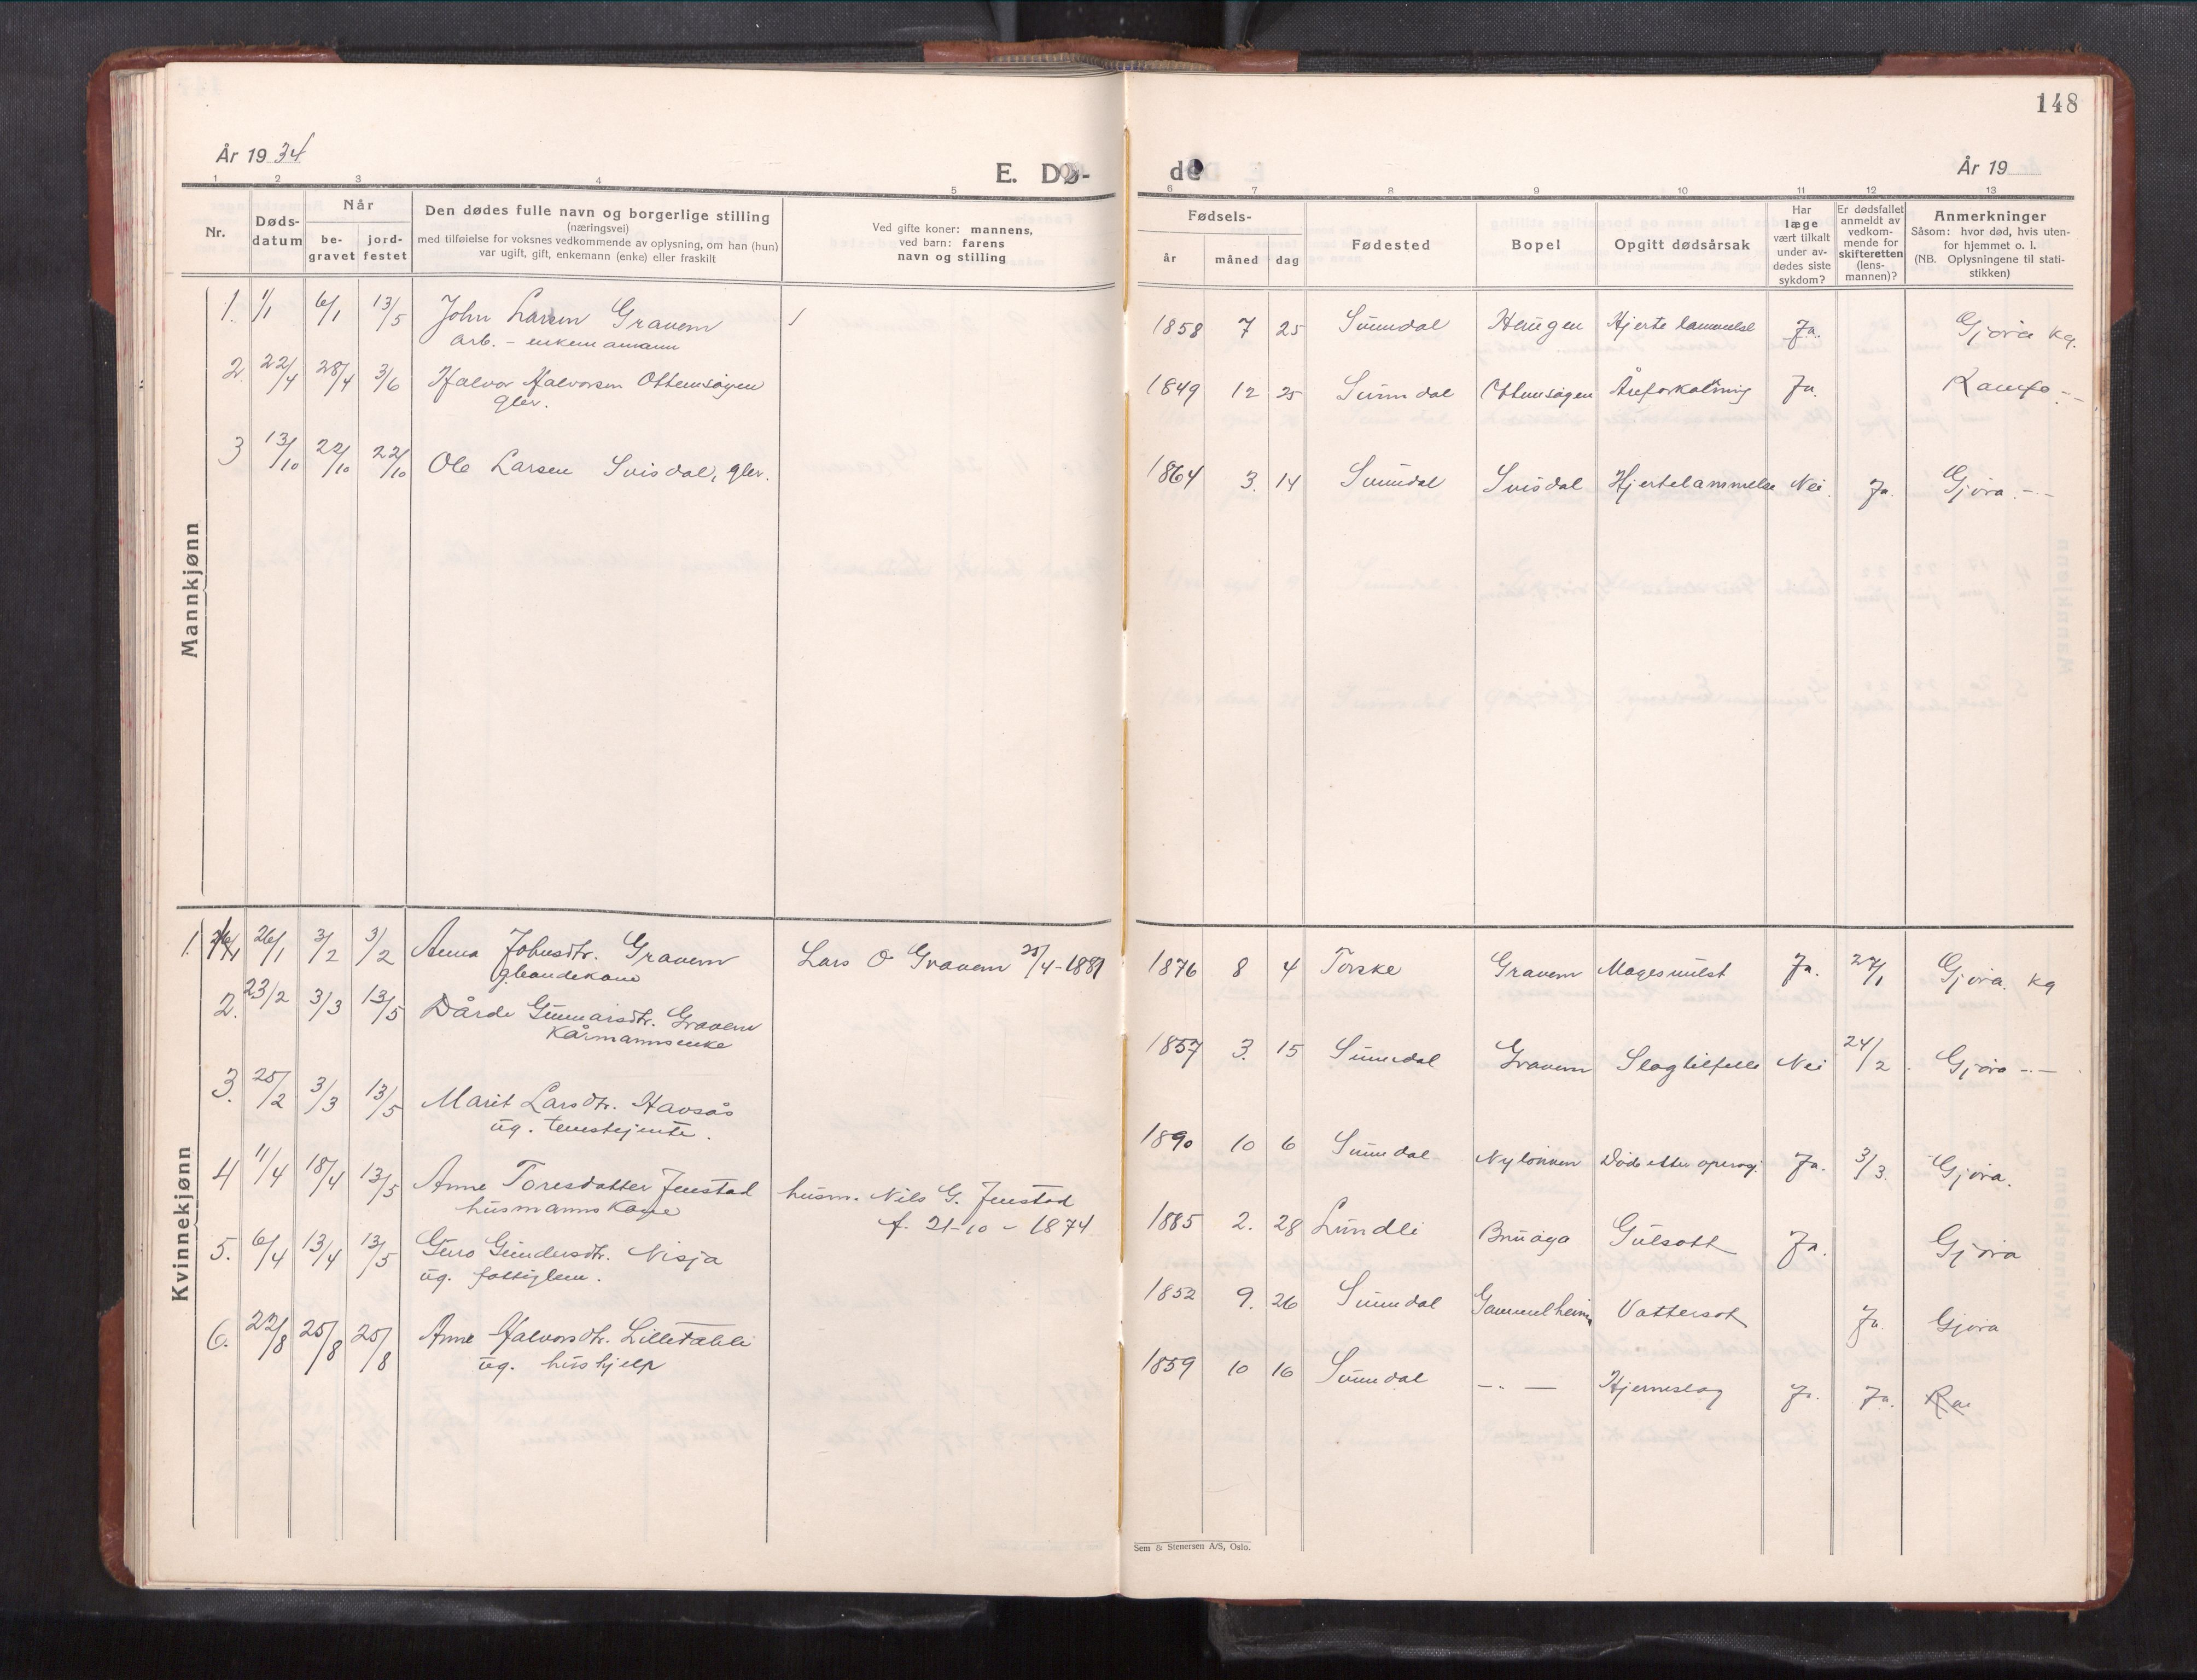 148
År 1934
E. Dø-
de
År 19
1 2 3 4 5 6 7 8 9 10 11 12 13
Nr.
Døds-
datum
Når
be-
gravet
jord-
festet
Den dødes fulle navn og borgerlige stilling
(næringsvei)
med tilføielse for voksnes vedkommende av oplysning, om han (hun)
var ugift, gift, enkemann (enke) eller fraskilt
Ved gifte koner: mannens,
ved barn: farens
navn og stilling
Fødsels-
år måned dag
Fødested
Bopel
Opgitt dødsårsak
Har
læge
vært tilkalt
under av-
dødes siste
sykdom?
Er dødsfallet
anmeldt av
vedkom-
mende for
skifteretten
(lens-
mannen)?
Anmerkninger
Såsom: hvor død, hvis uten-
for hjemmet o. l.
(NB. Oplysningene til stati-
stikken)
Mannkjønn
1. 1/1 6/1 13/5 John Larsen Gravem 1858 7 25 Sunndal Haugen Hjertelammelse Ja. Gjøra kg.
arb. - enkemann
2. 22/4 28/4 3/6 Halvor Halvorsen Ottemsøyen 1849 12 25 Sunndal Ottemsøyen Åreforkalkning Ja. Romfo -.-
gbr.
3 13/10 22/10 22/10 Ole Larsen Svisdal, gbr. 1864 3. 14 Sunndal Svisdal Hjertelammelse Nei. Ja. Gjøra -.-
Kvinnekjønn
1. 26/1 3/2 3/2 Anna Johnsdtr. Gravem Lars O Gravem 25/4-1881 1876 8 4 Torske Gravem Ja. 27/1 Gjøra. kg
gbrukekone
2. 23/2 3/3 13/5 Dårde Gunnarsdtr. Gravem 1857 3. 15 Sunndal Gravem Slagtilfelle Nei 24/2. Gjøra -.-
Kårmannsenke
3. 25/2 3/3 13/5 Marit Larsdtr. Havsås 1890 10 6 Sunndal Nylønnen Død etter operasj. Ja. 3/3. Gjøra.
ug. tenestejente.
4 11/4 18/4 13/5 Anne Toresdatter Jenstad husm. Nils G. Jenstad 1885 2. 28 Lundli Bruøya Gulsott Ja. Gjøra
husmannskone f. 21-10-1874
5. 6/4 13/4 13/5 Guro Gundersdtr. Nisja 1852 9. 26 Sunndal Gammelheimen Vattersot Ja. Gjøra
ug. fattiglem.
6. 22/8 25/8 25/8 Anne Halvorsdtr. Lilletahli 1859 10 16 Sunndal -.- Hjerneslag Ja. Ja.
ug. hushjelp
Sem & Stenersen A/S, Oslo.